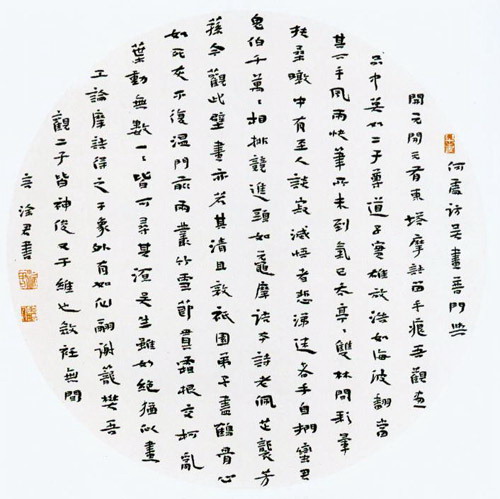 何處訪吳畫普門與
開元開元有東塔摩詰留手痕吾觀畫
品中莫如二子尊道子實雄放浩如海波翻當
其下手風雨快筆所未到氣已吞亭〻雙林間彩暈
扶桑暾中有至人談寂滅悟者悲涕迷者手自捫蠻君
鬼伯千萬〻相排競進頭如黿摩詰本詩老佩芷襲芳
蓀今觀此壁畫亦若其清且敦祇園弟子盡鶴骨心
如死灰不復溫門前兩叢竹雪節貫霜根交柯亂
葉動無數一〻皆可尋其源吳生雖妙絕猶以畫
工論摩詰得之于象外有如仙翮謝籠樊吾
觀二子皆神俊又于維也斂衽無間
言 君書